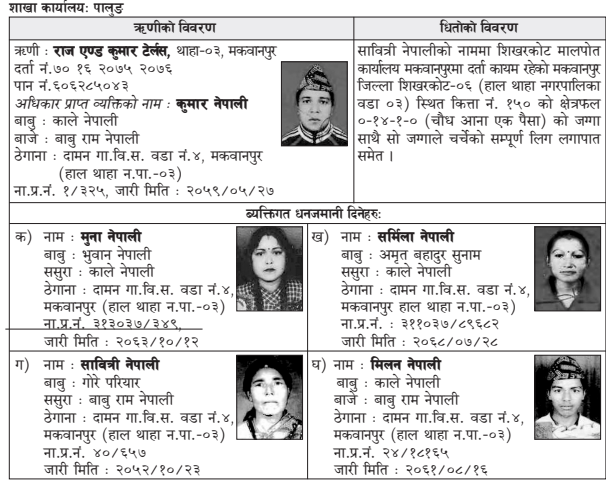 शाखा कार्यालयः पालुङ
ऋणीको विवरण
ऋणी : राज एण्ड कुमार टेर्लस, थाहा-०३, मकवानपुर
दर्ता नं.७० १६ २०७५ २०७६
पान नं.६०६२८५०४३
अधिकार प्राप्त व्यक्तिको नाम : कुमार नेपाली
बाबु : काले नेपाली
बाजे : बाबु राम नेपाली
ठेगाना : दामन गा.वि.स. वडा नं.४, मकवानपुर
(हाल थाहा न.पा.-०३)
ना.प्र.नं. १/३२५, जारी मिति : २०५९/०५/२७
धितोको विवरण
सावित्री नेपालीको नाममा शिखरकोट मालपोत
कार्यालय मकवानपुरमा दर्ता कायम रहेको मकवानपुर
जिल्ला शिखरकोट-०६ (हाल थाहा नगरपालिका
वडा ०३) स्थित कित्ता नं. १५० को क्षेत्रफल
०-१४-१-० (चौध आना एक पैसा) को जग्गा
साथै सो जग्गाले चर्चेको सम्पूर्ण लिग लगापात
समेत ।
ब्यक्तिगत धनजमानी दिनेहरुः
क) नाम : मुना नेपाली
बाबु : भुवान नेपाली
ससुरा : काले नेपाली
ठेगाना : दामन गा.वि.स. वडा नं.४,
मकवानपुर (हाल थाहा न.पा.-०३)
ना.प्र.नं. ३१३०३७/३४९,
जारी मिति : २०६३/१०/१२
ख) नाम : सर्मिला नेपाली
बाबु : अमृत बहादुर सुनाम
ससुरा : काले नेपाली
ठेगाना : दामन गा.वि.स. वडा नं.४,
मकवानपुर हाल थाहा न.पा.-०३)
ना.प्र.नं. : ३११०३७/८९६८२
जारी मिति : २०६८/०७/२८
ग) नाम : सावित्री नेपाली
बाबु : गोरे परियार
ससुरा : बाबु राम नेपाली
ठेगाना : दामन गा.वि.स. वडा नं.४,
मकवानपुर (हाल थाहा न.पा.-०३)
ना.प्र.नं. ४०/६५७
जारी मिति : २०५२/१०/२३
घ) नाम : मिलन नेपाली
बाबु : काले नेपाली
बाजे : बाबु राम नेपाली
ठेगाना : दामन गा.वि.स. वडा नं.४,
मकवानपुर (हाल थाहा न.पा.-०३)
ना.प्र.नं. २४/१८१६५
जारी मिति : २०६१/०८/१६